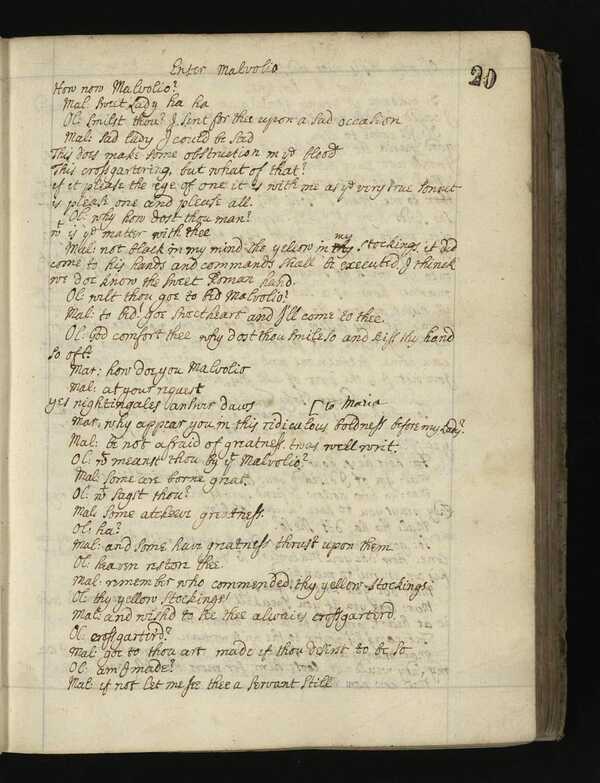 20
Enter Malvolio
How now Malvolio?
Mal: Sweet Lady ha ha
Ol: Smilst thou? I sent for thee upon a sad occasion
Mal: Sad lady I could be sad
This does make some obstruction in yᵉ blood
This crossgartering, but what of that?
if it please the eye of one it is with me as yᵉ very true sonnet
is please one and please all.
Ol: why how dost thou man?
wᵗ is yᵉ matter with thee
Mal: not black in my mind tho yellow in my stockings it did
come to his hands and commands shall be executed I think
we doe know the sweet Roman hand.
Ol: wilt thou goe to bed Malvolio?
Mal: to bed! goe sweetheart and I'll come to thee.
Ol: God comfort thee why dost thou smile so and kiss thy hand
so oft?
Mar: how doe you Malvolio
Mal: at your request
yes nightingales answer daws [to Maria
Mar: why appear you in this ridiculous boldness before my Lady?
Mal: be not afraid of greatness. twas well writ.
Ol: wᵗ meanst thou by yᵗ Malvolio?
Mal: Some are borne great.
Ol: wᵗ sayst thou?
Mal: Some atcheive greatness.
Ol: ha?
Mal: and some have greatness thrust upon them
Ol: heaven restore thee.
Mal: remember who commended thy yellow-stockings
Ol: thy yellow stockings!
Mal: and wish'd to see thee always crossgarterd
Ol: crossgarterd?
Mal: goe to thou art made if thou desirst to be so
Ol: am I made?
Mal: if not let me see thee a servant still